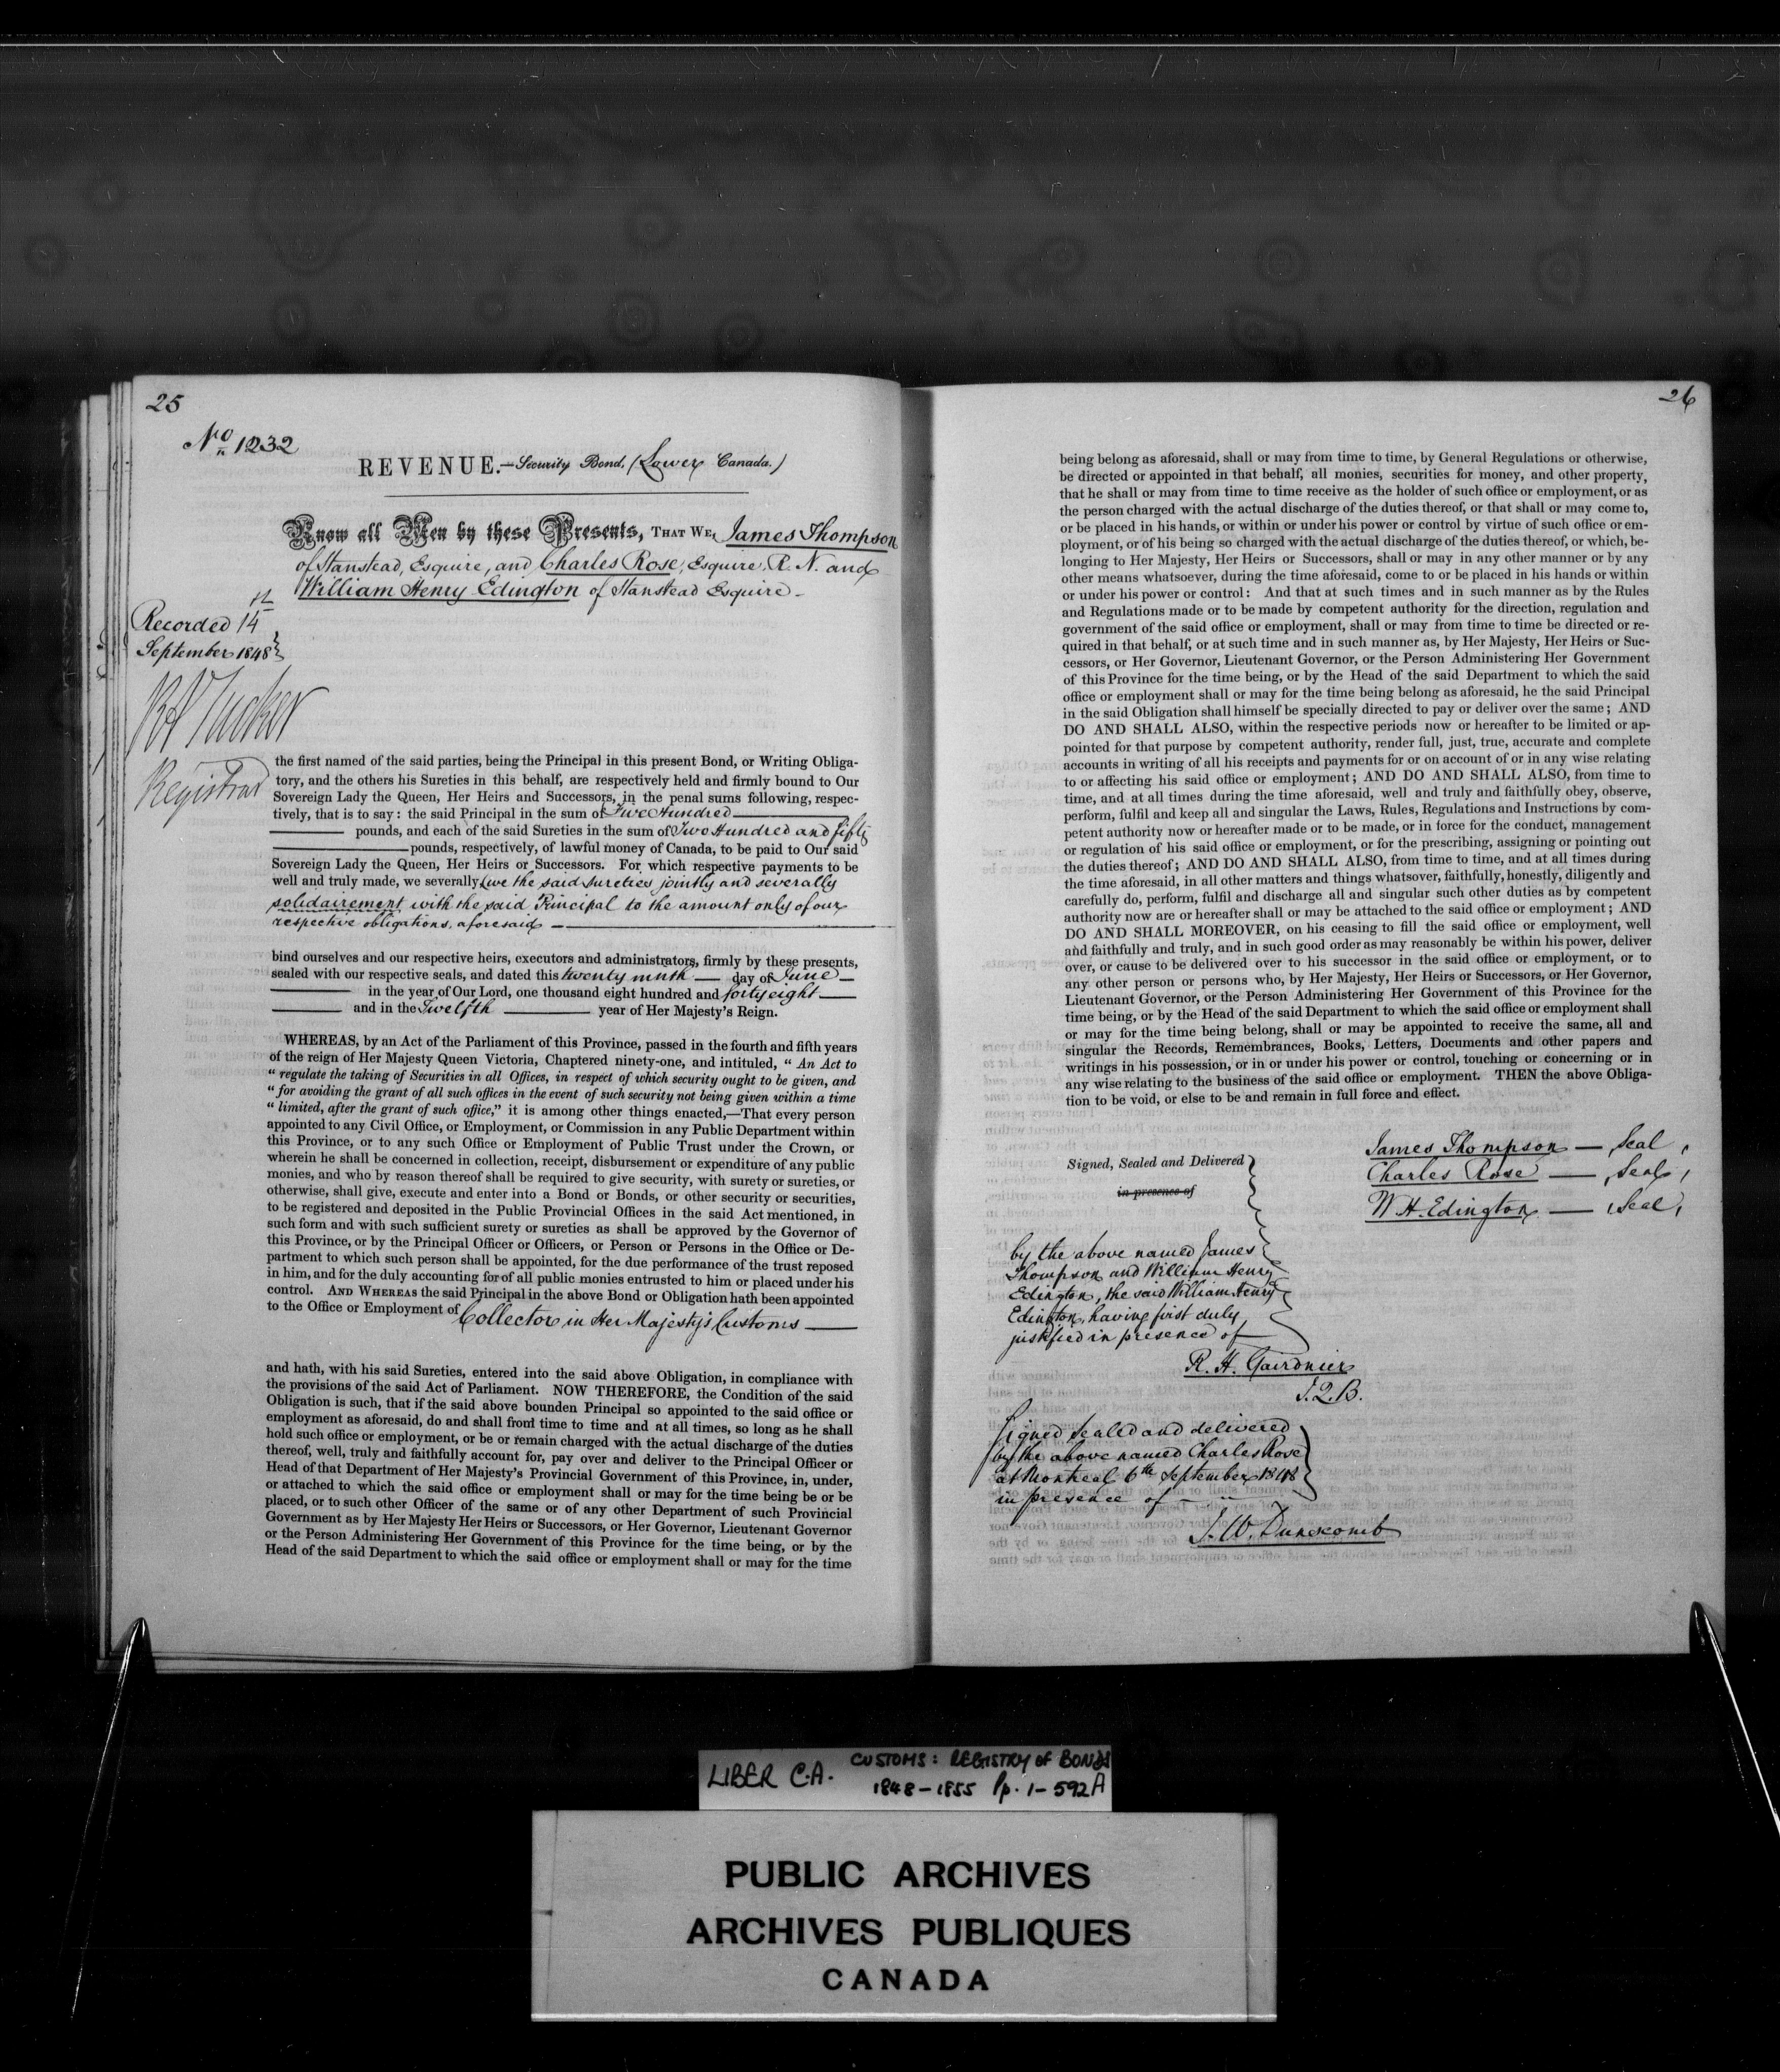 25
No 1232
REVENUE.—Security Bond. (Lower Canada.)
Know all Men by these Presents, THAT WE, James Thompson
of Stanstead, Esquire, and Charles Rose, Esquire, R. N. and
William Henry Edington of Stanstead Esquire -
Recorded 14th
September 1848
Tucker
Registrar
the first named of the said parties, being the Principal in this present Bond, or Writing Obliga-
tory, and the others his Sureties in this behalf, are respectively held and firmly bound to Our
Sovereign Lady the Queen, Her Heirs and Successors, in the penal sums following, respec-
tively, that is to say: the said Principal in the sum of Five Hundred
pounds, and each of the said Sureties in the sum of Two Hundred and fifty
pounds, respectively, of lawful money of Canada, to be paid to Our said
Sovereign Lady the Queen, Her Heirs or Successors. For which respective payments to be
well and truly made, we severally (we the said Sureties jointly and severally
solidairement with the said Principal to the amount only of our
respective obligations aforesaid —
bind ourselves and our respective heirs, executors and administrators, firmly by these presents,
sealed with our respective seals, and dated this twenty ninth — day of June —
in the year of Our Lord, one thousand eight hundred and forty eight —
and in the Twelfth — year of Her Majesty's Reign.
WHEREAS, by an Act of the Parliament of this Province, passed in the fourth and fifth years
of the reign of Her Majesty Queen Victoria, Chaptered ninety-one, and intituled, " An Act to
" regulate the taking of Securities in all Offices, in respect of which security ought to be given, and
" for avoiding the grant of all such offices in the event of such security not being given within a time
" limited, after the grant of such office," it is among other things enacted,—That every person
appointed to any Civil Office, or Employment, or Commission in any Public Department within
this Province, or to any such Office or Employment of Public Trust under the Crown, or
wherein he shall be concerned in collection, receipt, disbursement or expenditure of any public
monies, and who by reason thereof shall be required to give security, with surety or sureties, or
otherwise, shall give, execute and enter into a Bond or Bonds, or other security or securities,
to be registered and deposited in the Public Provincial Offices in the said Act mentioned, in
such form and with such sufficient surety or sureties as shall be approved by the Governor of
this Province, or by the Principal Officer or Officers, or Person or Persons in the Office or De-
partment to which such person shall be appointed, for the due performance of the trust reposed
in him, and for the duly accounting for of all public monies entrusted to him or placed under his
control. AND WHEREAS the said Principal in the above Bond or Obligation hath been appointed
to the Office or Employment of Collector in Her Majesty's Customs —
and hath, with his said Sureties, entered into the said above Obligation, in compliance with
the provisions of the said Act of Parliament. NOW THEREFORE, the Condition of the said
Obligation is such, that if the said above bounden Principal so appointed to the said office or
employment as aforesaid, do and shall from time to time and at all times, so long as he shall
hold such office or employment, or be or remain charged with the actual discharge of the duties
thereof, well, truly and faithfully account for, pay over and deliver to the Principal Officer or
Head of that Department of Her Majesty's Provincial Government of this Province, in, under,
or attached to which the said office or employment shall or may for the time being be or be
placed, or to such other Officer of the same or of any other Department of such Provincial
Government as by Her Majesty Her Heirs or Successors, or Her Governor, Lieutenant Governor
or the Person Administering Her Government of this Province for the time being, or by the
Head of the said Department to which the said office or employment shall or may for the time
26
being belong as aforesaid, shall or may from time to time, by General Regulations or otherwise,
be directed or appointed in that behalf, all monies, securities for money, and other property,
that he shall or may from time to time receive as the holder of such office or employment, or as
the person charged with the actual discharge of the duties thereof, or that shall or may come to,
or be placed in his hands, or within or under his power or control by virtue of such office or em-
ployment, or of his being so charged with the actual discharge of the duties thereof, or which, be-
longing to Her Majesty, Her Heirs or Successors, shall or may in any other manner or by any
other means whatsoever, during the time aforesaid, come to or be placed in his hands or within
or under his power or control: And that at such times and in such manner as by the Rules
and Regulations made or to be made by competent authority for the direction, regulation and
government of the said office or employment, shall or may from time to time be directed or re-
quired in that behalf, or at such time and in such manner as, by Her Majesty, Her Heirs or Suc-
cessors, or Her Governor, Lieutenant Governor, or the Person Administering Her Government
of this Province for the time being, or by the Head of the said Department to which the said
office or employment shall or may for the time being belong as aforesaid, he the said Principal
in the said Obligation shall himself be specially directed to pay or deliver over the same; AND
DO AND SHALL ALSO, within the respective periods now or hereafter to be limited or ap-
pointed for that purpose by competent authority, render full, just, true, accurate and complete
accounts in writing of all his receipts and payments for or on account of or in any wise relating
to or affecting his said office or employment; AND DO AND SHALL ALSO, from time to
time, and at all times during the time aforesaid, well and truly and faithfully obey, observe,
perform, fulfil and keep all and singular the Laws, Rules, Regulations and Instructions by com-
petent authority now or hereafter made or to be made, or in force for the conduct, management
or regulation of his said office or employment, or for the prescribing, assigning or pointing out
the duties thereof; AND DO AND SHALL ALSO, from time to time, and at all times during
the time aforesaid, in all other matters and things whatsoever, faithfully, honestly, diligently and
carefully do, perform, fulfil and discharge all and singular such other duties as by competent
authority now are or hereafter shall or may be attached to the said office or employment; AND
DO AND SHALL MOREOVER, on his ceasing to fill the said office or employment, well
and faithfully and truly, and in such good order as may reasonably be within his power, deliver
over, or cause to be delivered over to his successor in the said office or employment, or to
any other person or persons who, by Her Majesty, Her Heirs or Successors, or Her Governor,
Lieutenant Governor, or the Person Administering Her Government of this Province for the
time being, or by the Head of the said Department to which the said office or employment shall
or may for the time being belong, shall or may be appointed to receive the same, all and
singular the Records, Remembrances, Books, Letters, Documents and other papers and
writings in his possession, or in or under his power or control, touching or concerning or in
any wise relating to the business of the said office or employment. THEN the above Obliga-
tion to be void, or else to be and remain in full force and effect.
James Thompson — Seal
Charles Rose — Seal
W H. Edington — Seal
Signed, Sealed and Delivered
in presence of
by the above named James
Thompson and William Henry
Edington, the said William Henry
Edington, having first duly
justified in presence of
R. H. Gairdnier
J.Q.B.
Signed Sealed and delivered
by the above named Charles Rose
at Montreal 6th September 1848
in presence of
J. W. Dunscomb
LIBER C.A. CUSTOMS: REGISTRY of BONDS
1848-1855 Pp. 1-592A
PUBLIC ARCHIVES
ARCHIVES PUBLIQUES
CANADA